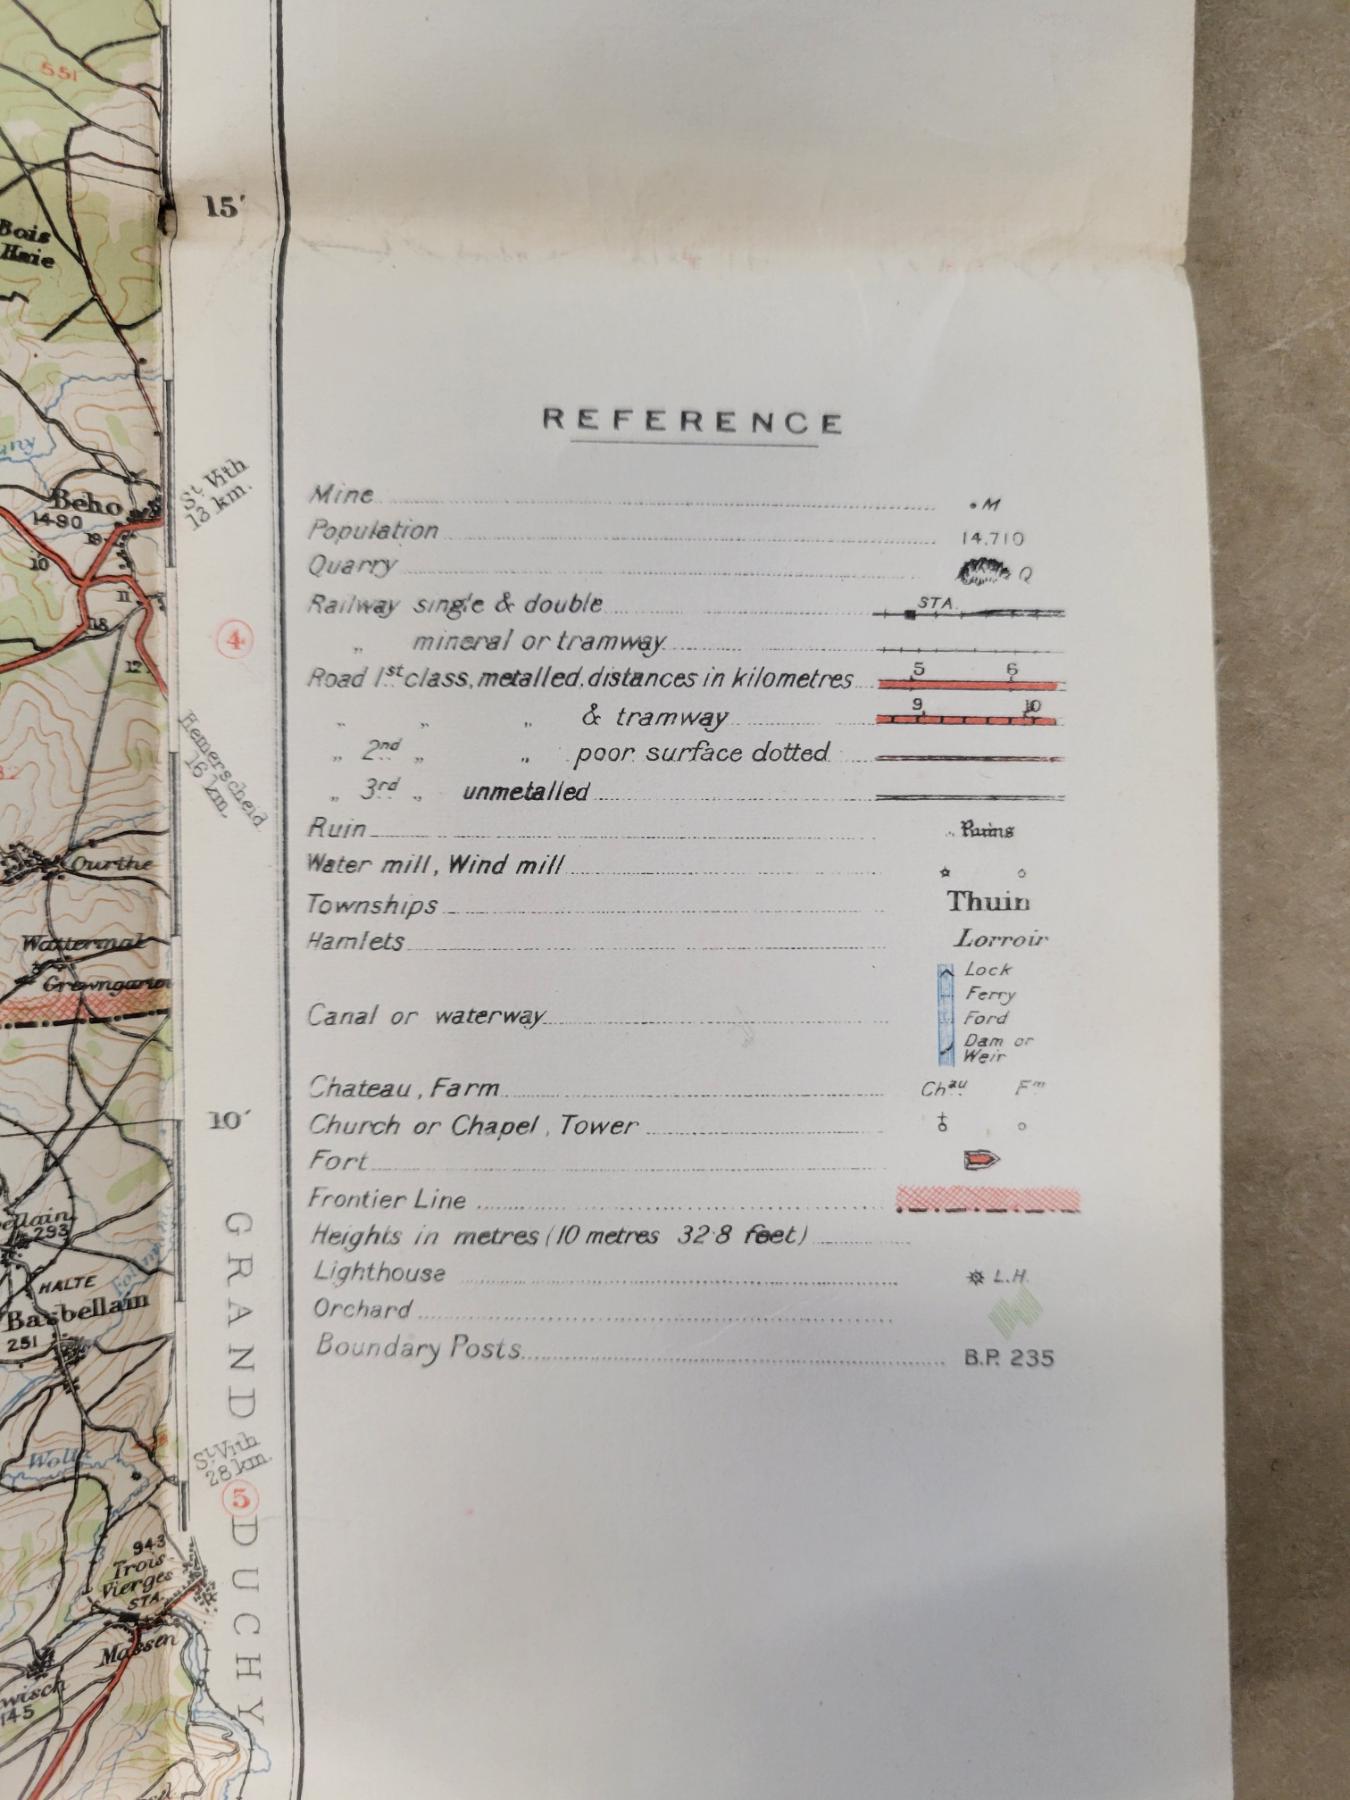 551
15′
Bois
Haie
REFERENCE
St. Vith
13 km.
Beho
1490
19
10
11
18
12
4
Mine • M
Population 14,710
Quarry Q
Railway single & double STA.
„ mineral or tramway
Road 1st class, metalled, distances in kilometres 5 6
„ „ „ & tramway 9 10
„ 2nd „ „ poor surface dotted
„ 3rd „ unmetalled
Ruin Ruins
Water mill, Wind mill
Townships Thuin
Hamlets Lorroir
Canal or waterway
Lock
Ferry
Ford
Dam or
Weir
Chateau, Farm Chau. Fm
Church or Chapel, Tower
Fort
Frontier Line
Heights in metres (10 metres 32·8 feet)
Lighthouse L.H.
Orchard
Boundary Posts B.P. 235
Hemerscheid
16 km.
Ourthe
Wattermal
10′
GRAND DUCHY
293
HALTE
Basbellain
251
St. Vith
28 km.
5
943
Trois
Vierges
STA.
Massen
145